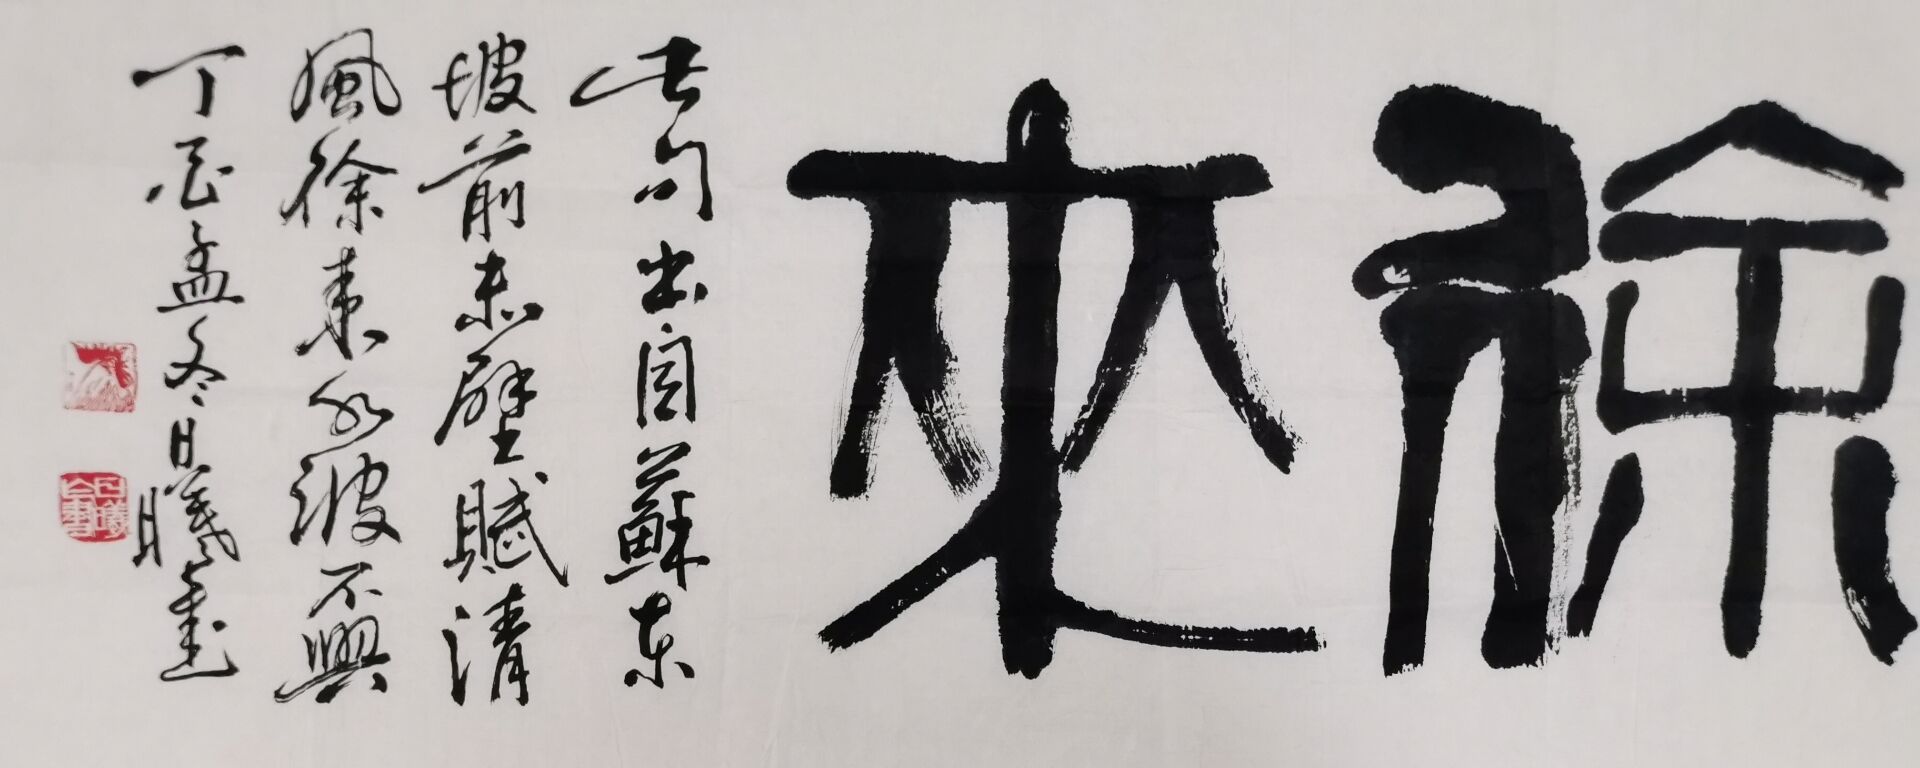 徐來
此句出自蘇東
坡前赤壁賦清
風徐来水波不興
丁酉孟冬日曦書